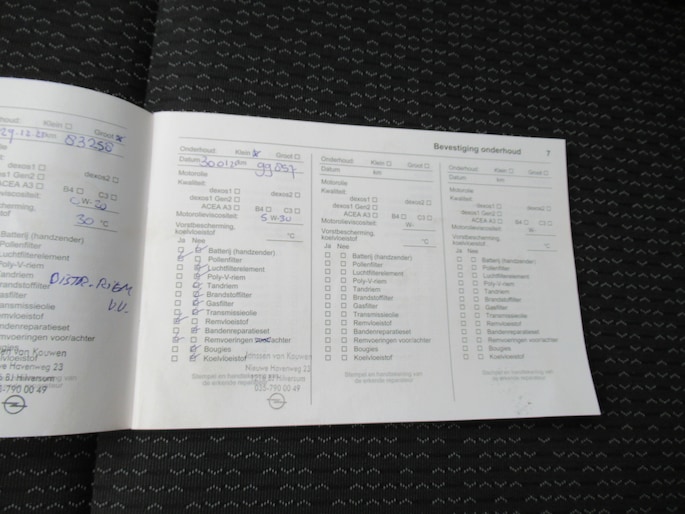 houd: Klein ☐ Groot ☒
29.12.20 km 83250
dexos1 ☐ dexos2 ☐
1 Gen2 ☐
ACEA A3 ☐ B4 ☐ C3 ☐
W-30
herming,
30 °C
Batterij (handzender)
Pollenfilter
Luchtfilterelement
Poly-V-riem
Tandriem
Brandstoffilter
DISTR. RIEM
Gasfilter
Transmissieolie
Remvloeistof
Bandenreparatieset
Remvoeringen voor/achter
Bougies
van Kouwen
Koelvloeistof
we Havenweg 23
BJ Hilversum
-790 00 49
Bevestiging onderhoud 7
Onderhoud: Klein ☒ Groot ☐
Datum km 99057
Motorolie
Kwaliteit:
dexos1 ☐ dexos2 ☐
dexos1 Gen2 ☐
ACEA A3 ☐ B4 ☐ C3 ☐
Motorolieviscositeit: 5 W-30
Vorstbescherming,
koelvloeistof °C
Ja Nee
Batterij (handzender)
Pollenfilter
Luchtfilterelement
Poly-V-riem
Tandriem
Brandstoffilter
Gasfilter
Transmissieolie
Remvloeistof
Bandenreparatieset
Remvoeringen voor/achter
Bougies
Koelvloeistof
Janssen van Kouwen
Nieuwe Havenweg 22
BJ Hilversum
035-790 00 49
Stempel en handtekening van
de erkende reparateur
Onderhoud: Klein ☐ Groot ☐
Datum km
Motorolie
Kwaliteit:
dexos1 ☐ dexos2 ☐
dexos1 Gen2 ☐
ACEA A3 ☐ B4 ☐ C3 ☐
Motorolieviscositeit: W-
Vorstbescherming,
koelvloeistof °C
Ja Nee
Batterij (handzender)
Pollenfilter
Luchtfilterelement
Poly-V-riem
Tandriem
Brandstoffilter
Gasfilter
Transmissieolie
Remvloeistof
Bandenreparatieset
Remvoeringen voor/achter
Bougies
Koelvloeistof
Stempel en handtekening van
de erkende reparateur
Onderhoud: Klein ☐ Groot ☐
Datum km
Motorolie
Kwaliteit:
dexos1 ☐ dexos2 ☐
dexos1 Gen2 ☐
ACEA A3 ☐ B4 ☐ C3 ☐
Motorolieviscositeit: W-
Vorstbescherming,
koelvloeistof °C
Ja Nee
Batterij (handzender)
Pollenfilter
Luchtfilterelement
Poly-V-riem
Tandriem
Brandstoffilter
Gasfilter
Transmissieolie
Remvloeistof
Bandenreparatieset
Remvoeringen voor/achter
Bougies
Koelvloeistof
Stempel en handtekening van
de erkende reparateur